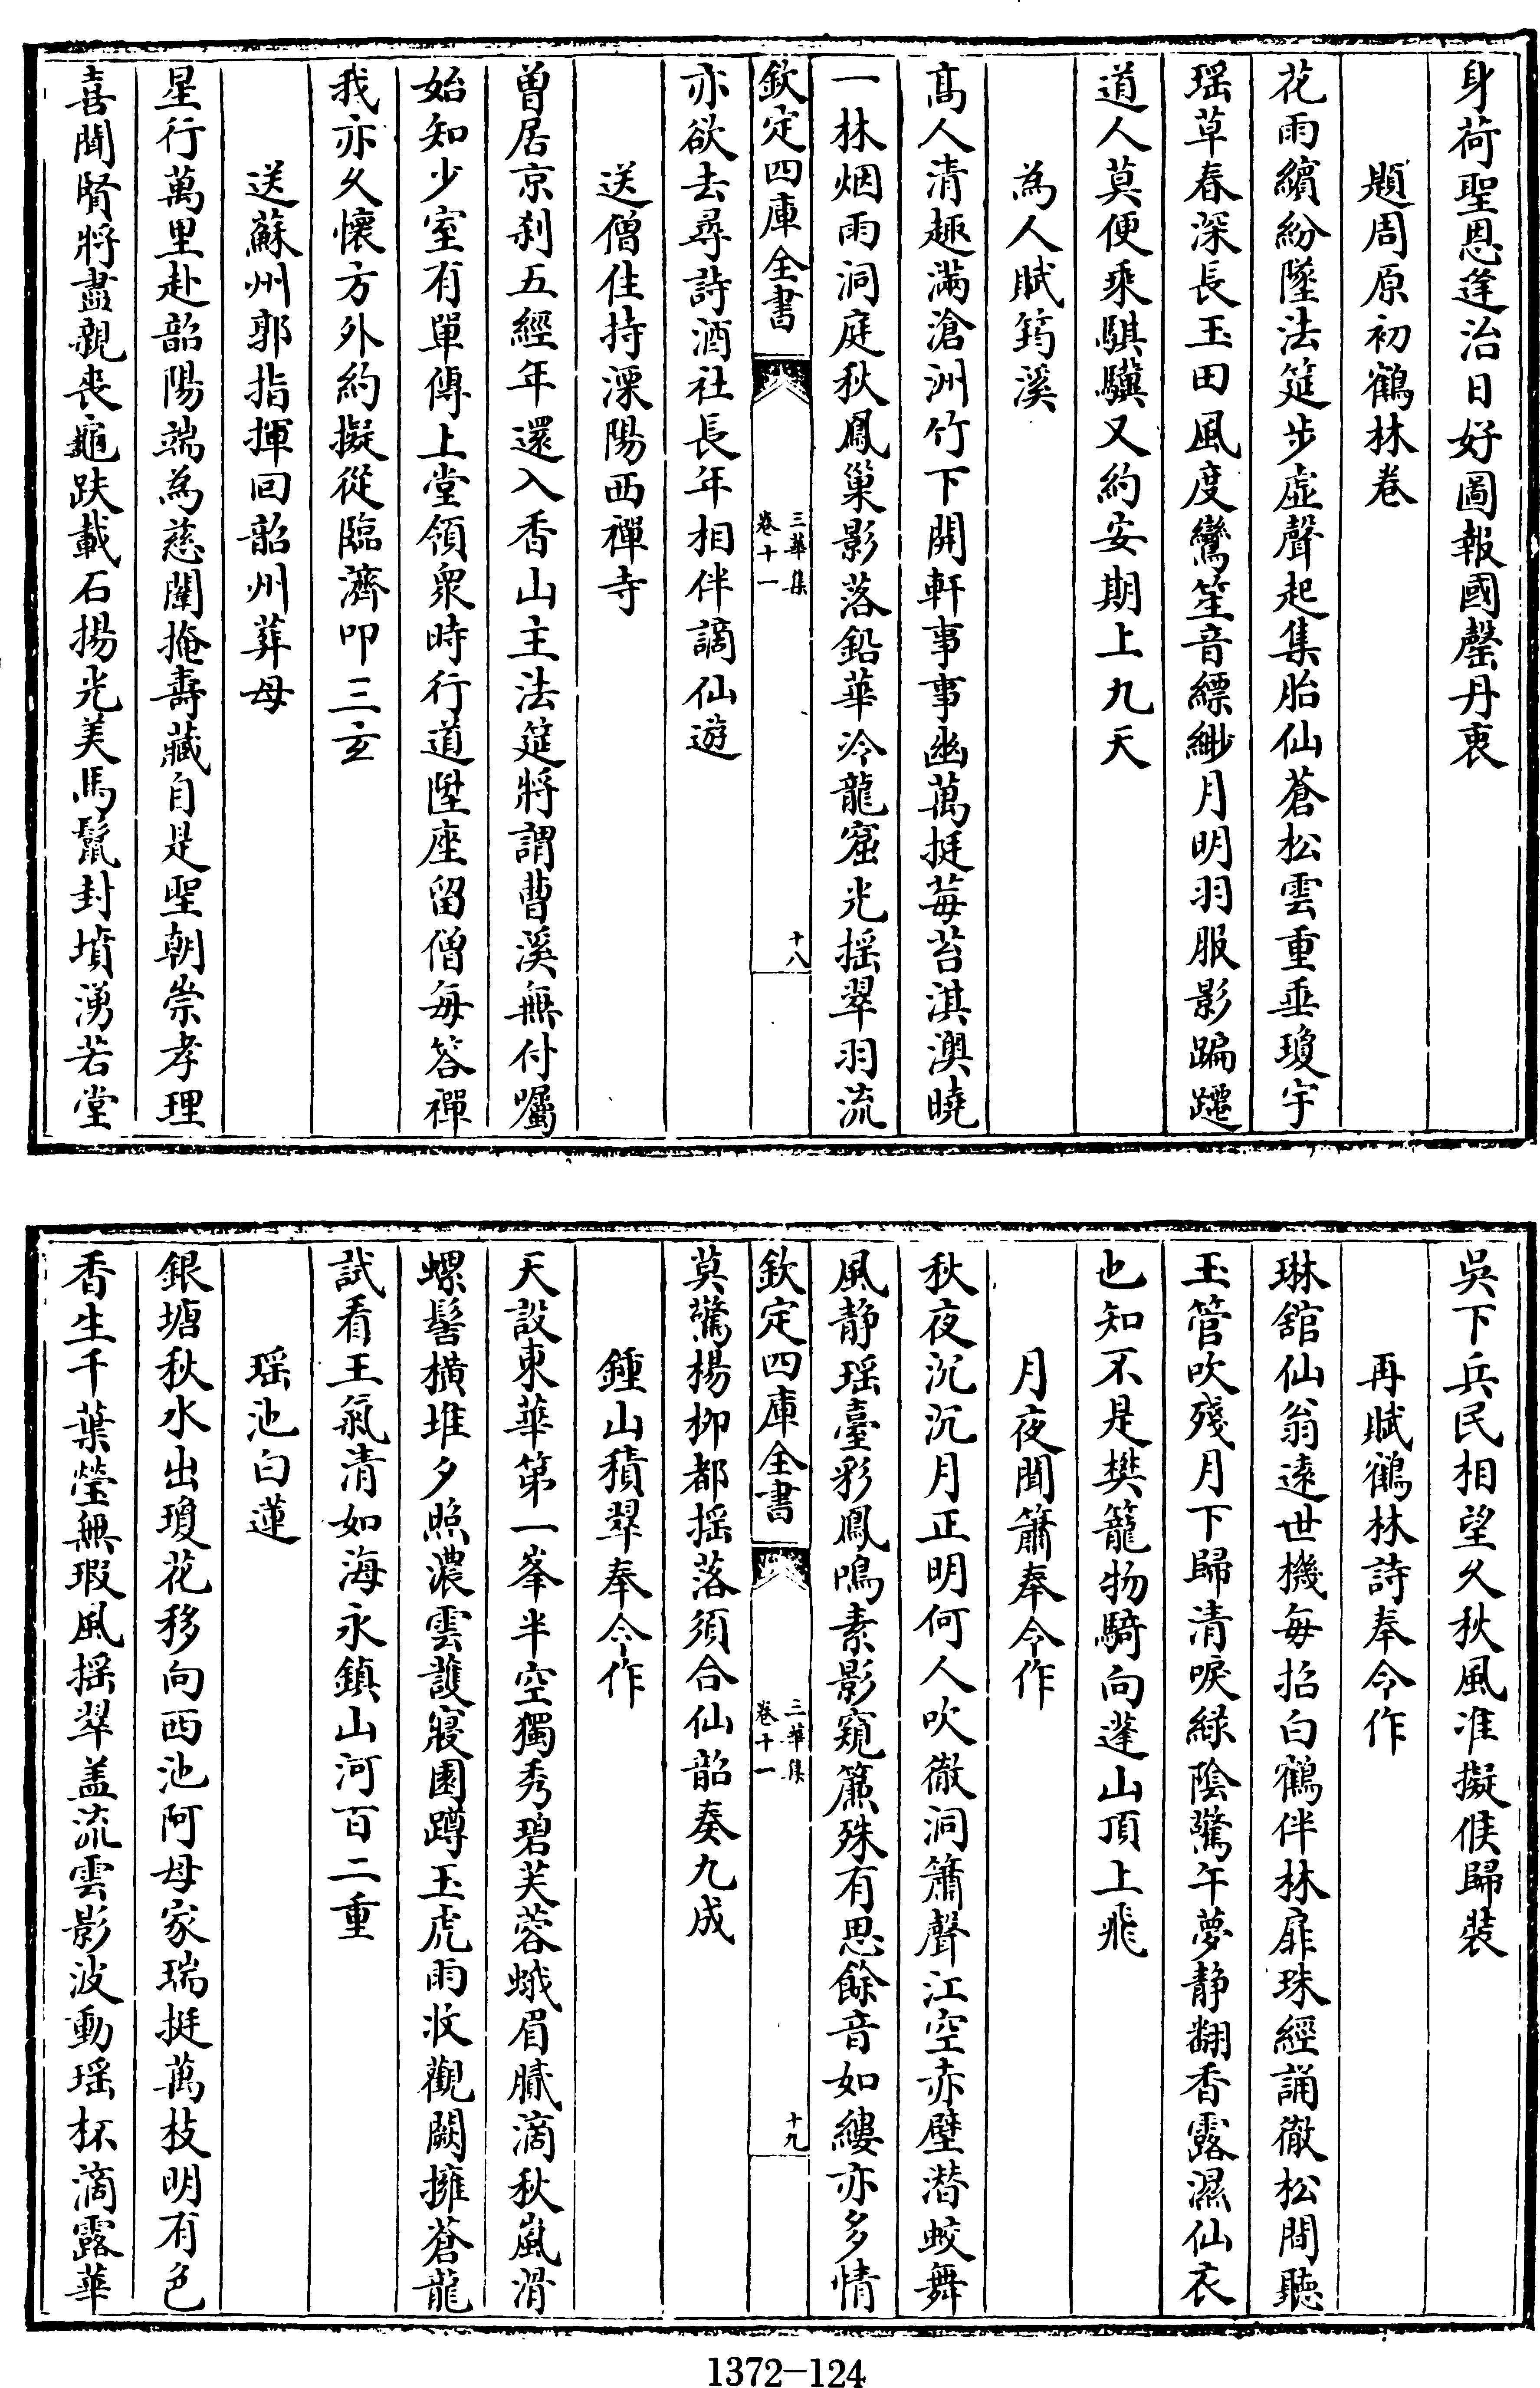 身荷聖恩逢治日好圖報國罄丹衷
題周原初鶴林卷
花雨繽紛墜法筵步虛聲起集胎仙蒼松雲重垂瓊宇
瑶草春深長玉田風度鸞笙音縹緲月明羽服影蹁躚
道人莫便乘騏驥又約安期上九天
為人賦筠溪
髙人清趣滿滄洲竹下開軒事事幽萬挺莓苔淇澳曉
一林烟雨洞庭秋鳳巢影落鉛華冷龍窟光揺翠羽流
欽定四庫全書
三華集
卷十一
十八
亦欲去尋詩酒社長年相伴謫仙遊
送僧住持溧陽西禪寺
曽居京刹五經年還入香山主法筵將謂曹溪無付囑
始知少室有單傳上堂領衆時行道陞座留僧每答禪
我亦久懷方外約擬從臨濟叩三玄
送蘇州郭指揮回韶州葬母
星行萬里赴韶陽端為慈闈掩壽藏自是聖朝崇孝理
喜聞賢將盡親喪龜趺載石揚光美馬鬛封墳湧若堂
吳下兵民相望久秋風准擬候歸裝
再賦鶴林詩奉令作
琳舘仙翁遠世機每招白鶴伴林扉珠經誦徹松間聽
玉管吹殘月下歸清唳綠陰驚午夢静翻香露濕仙衣
也知不是樊籠物騎向蓬山頂上飛
月夜聞簫奉令作
秋夜沉沉月正明何人吹徹洞簫聲江空赤壁潜蛟舞
風静瑶臺彩鳳鳴素影窺簾殊有思餘音如縷亦多情
欽定四庫全書
三華集
卷十一
十九
莫驚楊柳都揺落須合仙韶奏九成
鍾山積翠奉令作
天設東華第一峯半空獨秀碧芙蓉蛾眉膩滴秋嵐滑
螺髻横堆夕照濃雲護寢園蹲玉虎雨收觀闕擁蒼龍
試看王氣清如海永鎮山河百二重
瑶池白蓮
銀塘秋水出瓊花移向西池阿母家瑞挺萬枝明有色
香生千葉瑩無瑕風揺翠盖流雲影波動瑶杯滴露華
1372-124